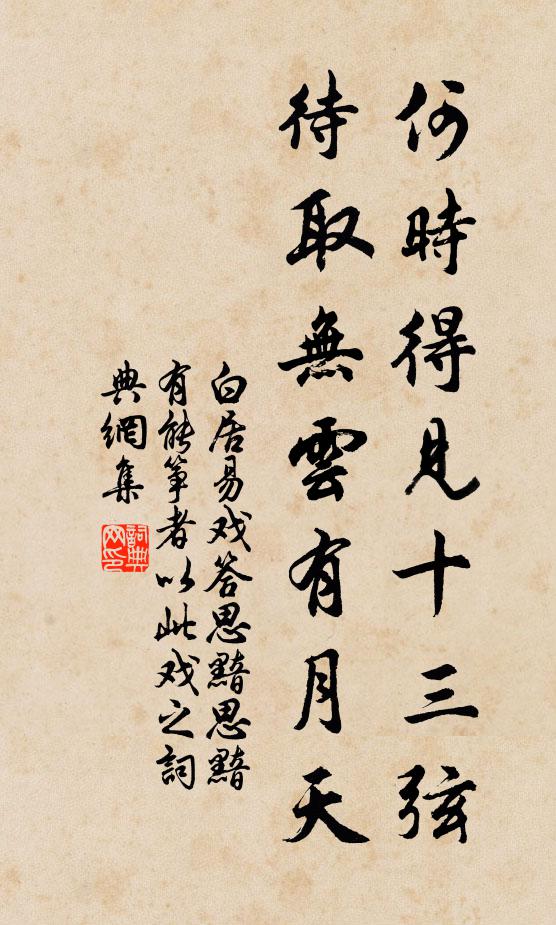 何時得見十三弦
待取無雲有月天
白居易戏答思黯思黯
有能筝者以此戏之詞
典網集
詞典
网印